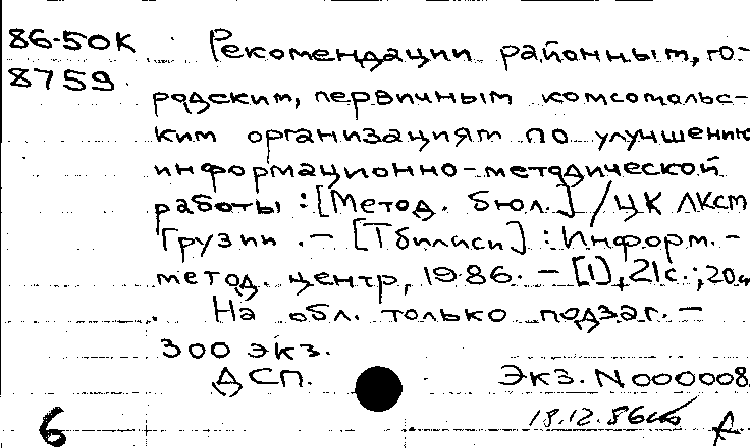 86-50К Рекомендации районным, го-
8759 родским, первичным комсомольс-
ким организациям по улучшению
информационно-методической
работы : [Метод. бюл.] / ЦК ЛКСМ
Грузии . - [Тбилиси] : Информ. -
метод. центр, 1986. - [1], 21 с. ; 20 
На обл. только подзаг. -
300 экз.
ДСП. Экз. N 000008
6 18.12.86